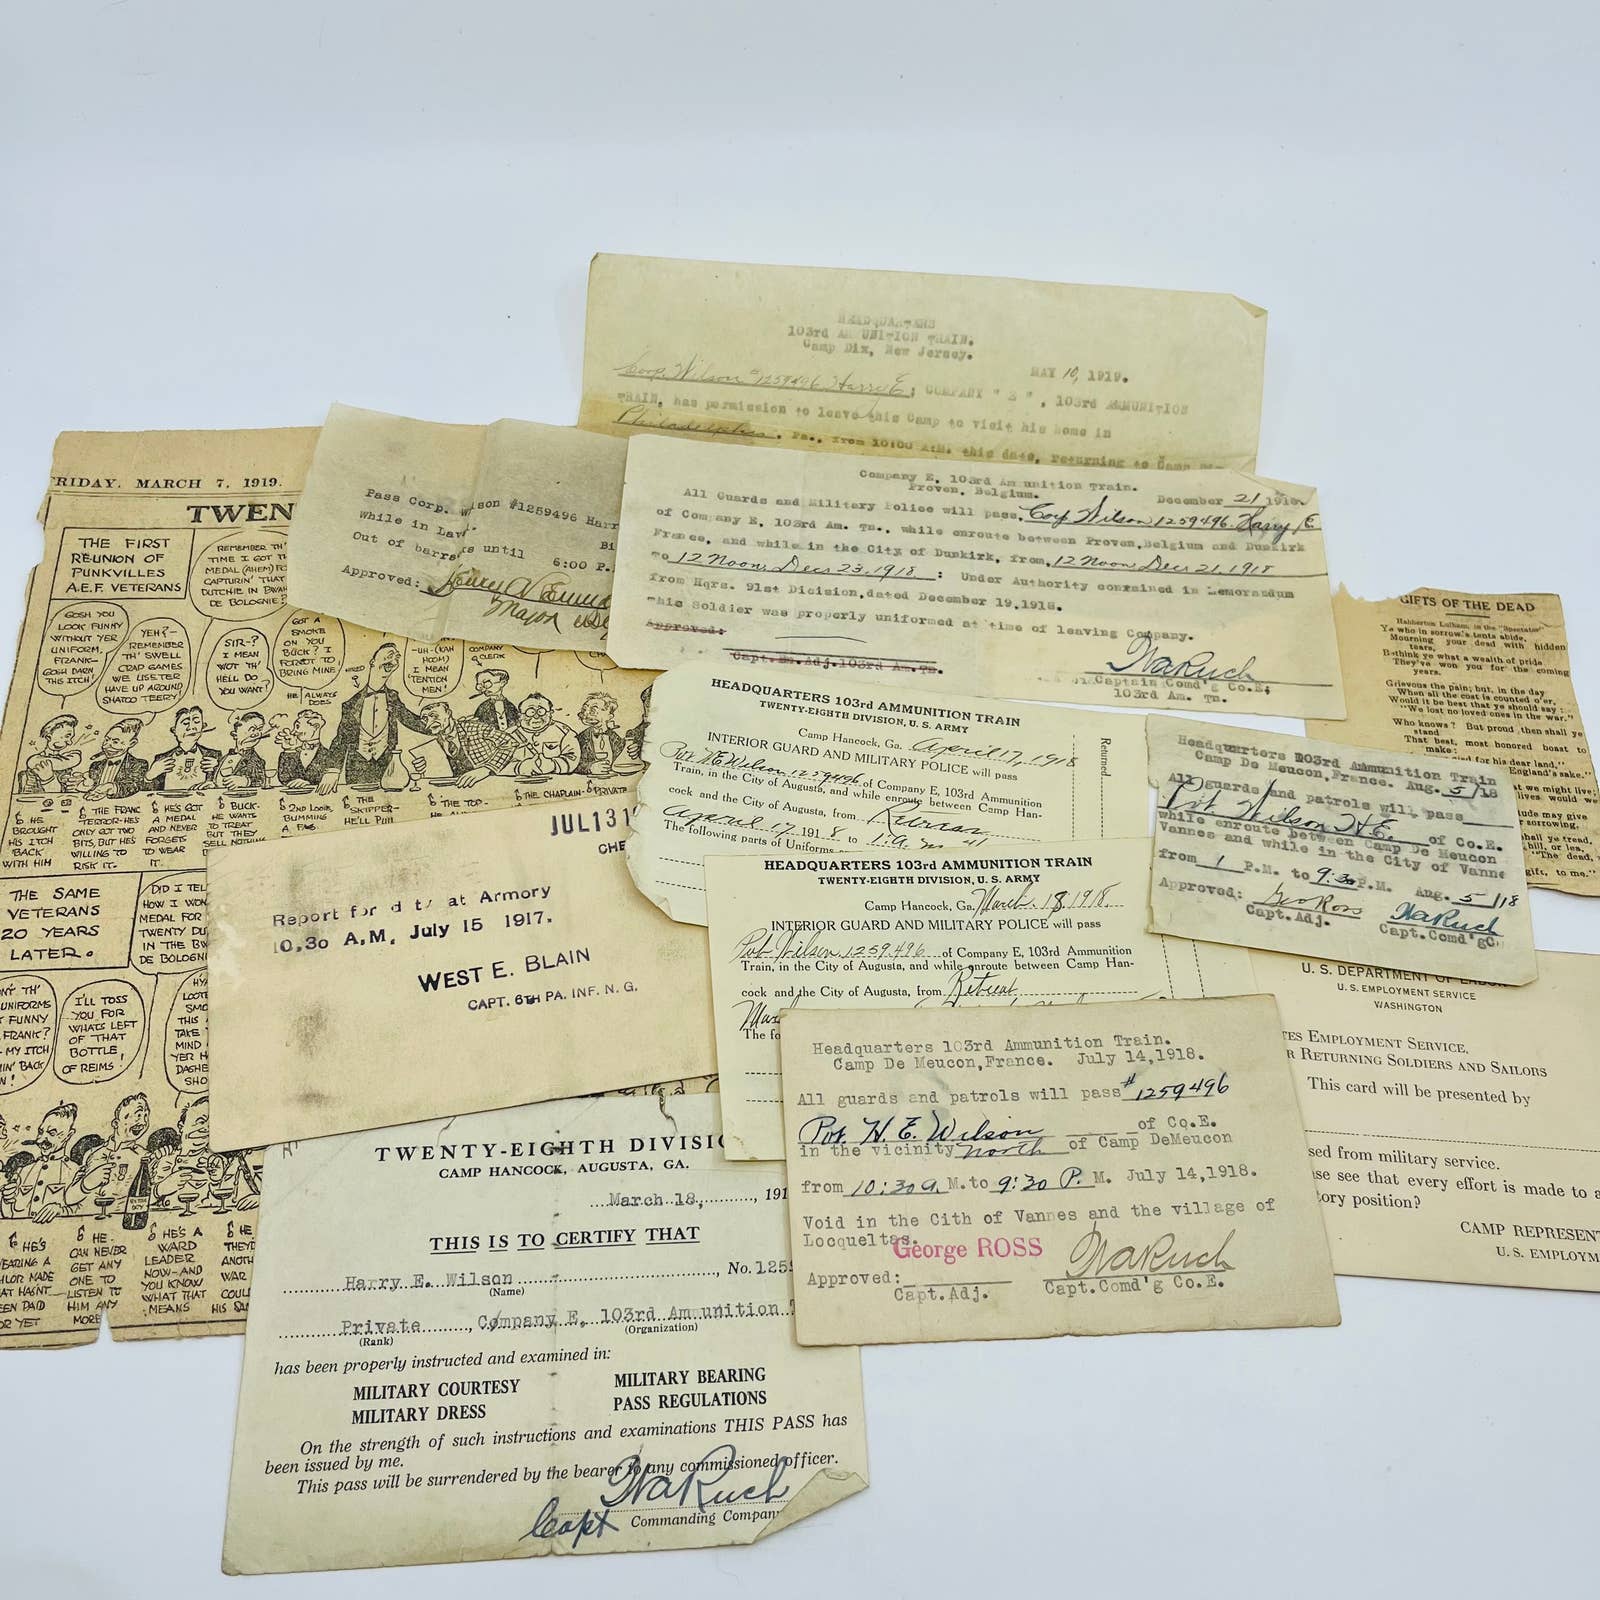 HEADQUARTERS
103rd AMMUNITION TRAIN.
Camp Dix, New Jersey.
MAY 10, 1919.
Corp. Wilson #1259496 Harry E; COMPANY " E ", 103rd AMMUNITION
TRAIN, has permission to leave this Camp to visit his home in
Philadelphia, Pa., from 10:00 A.M. this date, returning to Camp
Pass Corp. Wilson #1259496 Harr
While in Lav
Out of barracks until 6:00 P.
Approved:
Major
Company E, 103rd Ammunition Train.
Proven, Belgium.
December 21 1918.
All Guards and Military Police will pass, Corp Wilson 1259496 Harry E
of Company E, 103rd Am. Tn., while enroute between Proven, Belgium and Dunkirk
France, and while in the City of Dunkirk, from, 12 Noon, Dec 21, 1918
to 12 Noon, Dec 23, 1918 : Under Authority contained in Memorandum
from Hqrs. 91st Division, dated December 19, 1918.
This Soldier was properly uniformed at time of leaving Company.
Approved:
Capt. Adj. 103rd Am. Tn.
WaRuch
Captain Comd'g Co.E,
103rd Am. Tn.
RIDAY, MARCH 7, 1919.
TWEN
THE FIRST
REUNION OF
PUNKVILLES
A.E.F. VETERANS
REMEMBER TH'
TIME I GOT TH
MEDAL (AHEM) FO
CAPTURIN' THAT
DUTCHIE IN BWAH
DE BOLOGNIE?
GOSH YOU
LOOK FUNNY
WITHOUT YER
UNIFORM,
FRANK-
GOSH DARN
THIS ITCH!
YEH?-
REMEMBER
TH' SWELL
CRAP GAMES
WE USETER
HAVE UP AROUND
SHATOO TEERY!
SIR-?
I MEAN
WOT TH'
HELL DO
YOU WANT?
GOT A
SMOKE
ON YOU
BUCK? I
FORGOT TO
BRING MINE
HE ALWAYS
DOES
-UH-(KAH
HOOM)
I MEAN
'TENTION
MEN!
COMPANY
CLERK
HE
BROUGHT
HIS ITCH
BACK
WITH HIM
THE FRANC
TERROR-HE'S
ONLY GOT TWO
BITS, BUT HE'S
WILLING TO
RISK IT.
HE'S GOT
A MEDAL
AND NEVER
FORGETS
TO WEAR
IT.
BUCK-
HE WANTS
TO TREAT
BUT THEY
SELL NOTHING
2ND LOOIE
BUMMING
A FAG.
THE
SKIPPER-
HE'LL PULL
THE TOP-
THE CHAPLAIN-
PRIVATE
THE SAME
VETERANS
20 YEARS
LATER.
DID I TEL
HOW I WON
MEDAL FOR
TWENTY DU
IN THE BW
DE BOLOGN
I'LL TOSS
YOU FOR
WHATS LEFT
OF THAT
BOTTLE,
OF REIMS!
HE'S
CAN NEVER
GET ANY
ONE TO
LISTEN TO
HIM ANY
MORE
HE'S A
WARD
LEADER
NOW-AND
YOU KNOW
WHAT THAT
MEANS
JUL 13 1
CHE
Report for duty at Armory
10.30 A.M. July 15 1917.
WEST E. BLAIN
CAPT. 6TH PA. INF. N. G.
HEADQUARTERS 103rd AMMUNITION TRAIN
TWENTY-EIGHTH DIVISION, U. S. ARMY
Camp Hancock, Ga. April 17, 1918
INTERIOR GUARD AND MILITARY POLICE will pass
Pvt. H E Wilson 1259496 of Company E, 103rd Ammunition
Train, in the City of Augusta, and while enroute between Camp Han-
cock and the City of Augusta, from
April 17 1918 to
The following parts of Uniforms
Returned
HEADQUARTERS 103rd AMMUNITION TRAIN
TWENTY-EIGHTH DIVISION, U. S. ARMY
Camp Hancock, Ga. March 18, 1918.
INTERIOR GUARD AND MILITARY POLICE will pass
Pvt. Wilson, 1259496 of Company E, 103rd Ammunition
Train, in the City of Augusta, and while enroute between Camp Han-
cock and the City of Augusta, from Retreat
The fo
GIFTS OF THE DEAD
Habberton Lulham, in the "Spectator"
Ye who in sorrow's tents abide,
Mourning your dead with hidden
tears,
Bethink ye what a wealth of pride
They've won you for the coming
years.
Grievous the pain; but, in the day
When all the cost is counted o'er,
Would it be best that ye should say:
"We lost no loved ones in the war."
Who knows? But proud then shall ye
stand
That best, most honored boast to
make:
Headquarters 103rd Ammunition Train
Camp De Meucon, France. Aug. 5/18
All guards and patrols will pass
Pvt Wilson H E. of Co.E.
while enroute between Camp De Meucon
Vannes and while in the City of Vanne
from 1 P.M. to 9:30 P.M. Aug. 5/18
Approved: Geo Ross
Capt. Adj.
WaRuch
Capt.Comd'g
U. S. DEPARTMENT OF LABOR
U. S. EMPLOYMENT SERVICE
WASHINGTON
TES EMPLOYMENT SERVICE,
R RETURNING SOLDIERS AND SAILORS
This card will be presented by
sed from military service.
se see that every effort is made to a
tory position?
CAMP REPRESENT
U. S. EMPLOYM
Headquarters 103rd Ammunition Train.
Camp De Meucon, France. July 14, 1918.
All guards and patrols will pass # 1259496
Pvt. H. E. Wilson of Co.E.
in the vicinity North of Camp DeMeucon
from 10:30 A. M. to 9:30 P. M. July 14, 1918.
Void in the Cith of Vannes and the village of
Locqueltas.
George ROSS
WaRuch
Approved:
Capt. Adj.
Capt. Comd'g Co.E.
TWENTY-EIGHTH DIVISIO
CAMP HANCOCK, AUGUSTA, GA.
March 18, , 191
THIS IS TO CERTIFY THAT
Harry E. Wilson , No. 125
(Name)
Private , Company E, 103rd Ammunition T
(Rank) (Organization)
has been properly instructed and examined in:
MILITARY COURTESY MILITARY BEARING
MILITARY DRESS PASS REGULATIONS
On the strength of such instructions and examinations THIS PASS has
been issued by me.
This pass will be surrendered by the bearer to any commissioned officer.
WaRuch
Capt Commanding Compan